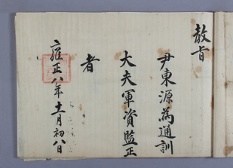 敎旨
尹東源爲通訓
大夫軍資監正
者
雍正八年十一月初八日